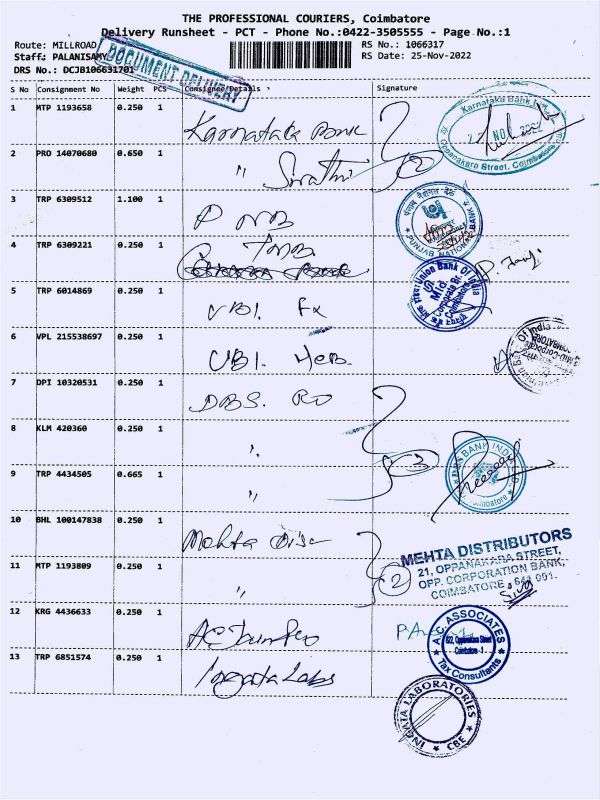 THE PROFESSIONAL COURIERS, Coimbatore
Delivery Runsheet - PCT - Phone No.:0422-3505555 - Page No.:1
Route: MILLROAD
RS No.: 1066317
Staff: PALANISAMY
RS Date: 25-Nov-2022
DRS No.: DCJB106631701
DOCUMENT DELIVERY
S No Consignment No Weight PCS Consignee Details Signature
1 MTP 1193658 0.250 1 Karnataka Bank
Karnataka Bank
NOV 2022
Oppanakara Street, Coimbatore
2 PRO 14070680 0.650 1 " Swathi 2
3 TRP 6309512 1.100 1 PNB
पंजाब नैशनल बैंक
PUNJAB NATIONAL BANK
4 TRP 6309221 0.250 1 TMB
Union Bank Of India
Mid
Corporate Br.
Coimbatore
5 TRP 6014869 0.250 1 UBI. Fx
6 VPL 215538697 0.250 1 UBI.
7 DPI 10320531 0.250 1 DBS. RO
8 KLM 420360 0.250 1 "
3
DBS BANK INDIA
Coimbatore
9 TRP 4434505 0.665 1 "
10 BHL 100147838 0.250 1 Mehta Dis
MEHTA DISTRIBUTORS
21, OPPANAKARA STREET,
OPP. CORPORATION BANK,
COIMBATORE - 641 001.
Siva
11 MTP 1193809 0.250 1 " 2
12 KRG 4436633 0.250 1
A.C. ASSOCIATES
622, Oppanakara Street
Coimbatore - 1
Tax Consultants
13 TRP 6851574 0.250 1 Ingata Labs
INGATA LABORATORIES
CBE